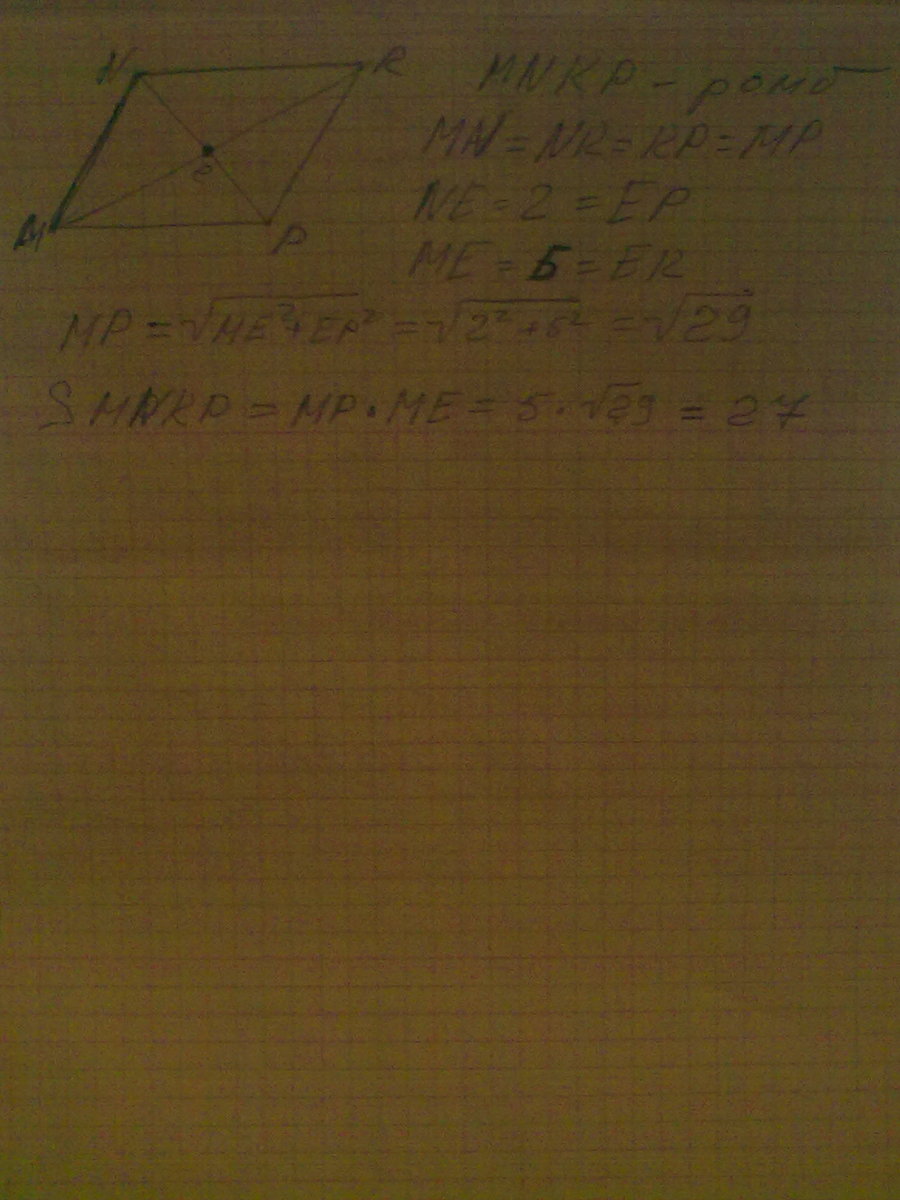 N R
MNRP - ромб
MN = NR = RP = MP
E
NE = 2 = EP
M P
ME = 5 = ER
MP = √ME²+EP² = √2²+5² = √29
S MNRP = MP · ME = 5 · √29 = 27